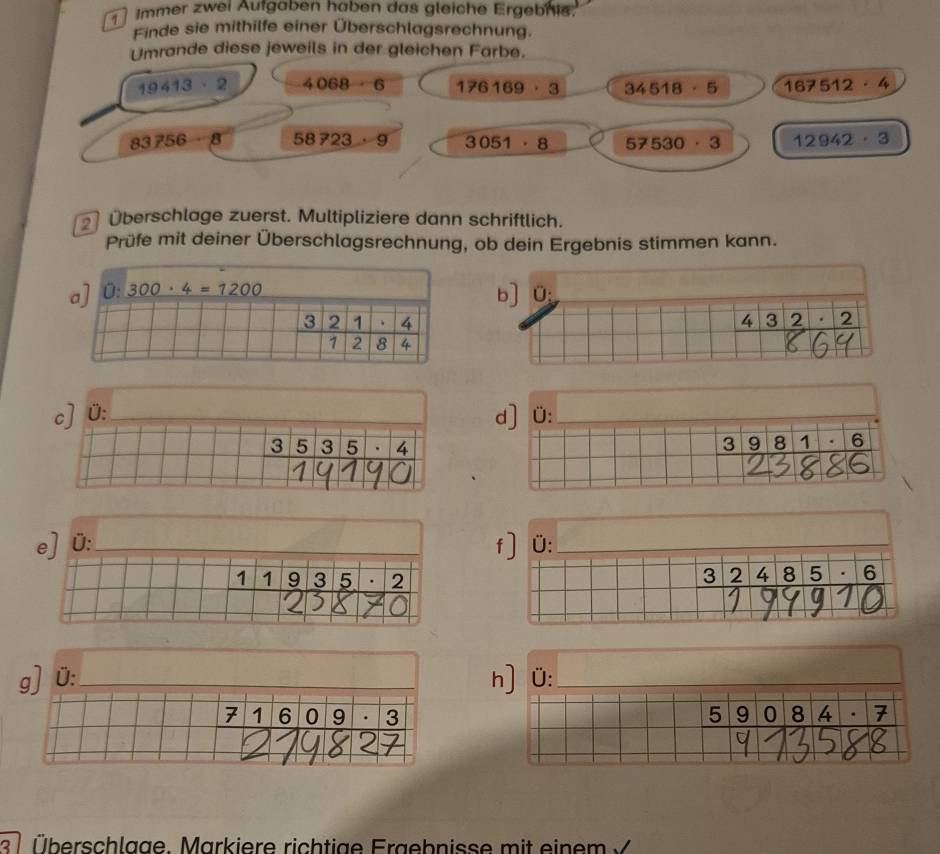 1 Immer zwei Aufgaben haben das gleiche Ergebnis.
Finde sie mithilfe einer Überschlagsrechnung.
Umrande diese jeweils in der gleichen Farbe.
19413 · 2 4068 · 6 176169 · 3 34518 · 5 167512 · 4
83756 · 8 58723 · 9 3051 · 8 57530 · 3 12942 · 3
2 Überschlage zuerst. Multipliziere dann schriftlich.
Prüfe mit deiner Überschlagsrechnung, ob dein Ergebnis stimmen kann.
a] Ü: 300 · 4 = 1200
321 · 4
1284
b] Ü:
432 · 2
864
c] Ü:
3535 · 4
14140
d] Ü:
3981 · 6
23886
e] Ü:
11935 · 2
23870
f] Ü:
32485 · 6
194910
g] Ü:
71609 · 3
214827
h] Ü:
59084 · 7
413588
3 Überschlage. Markiere richtige Ergebnisse mit einem ✓